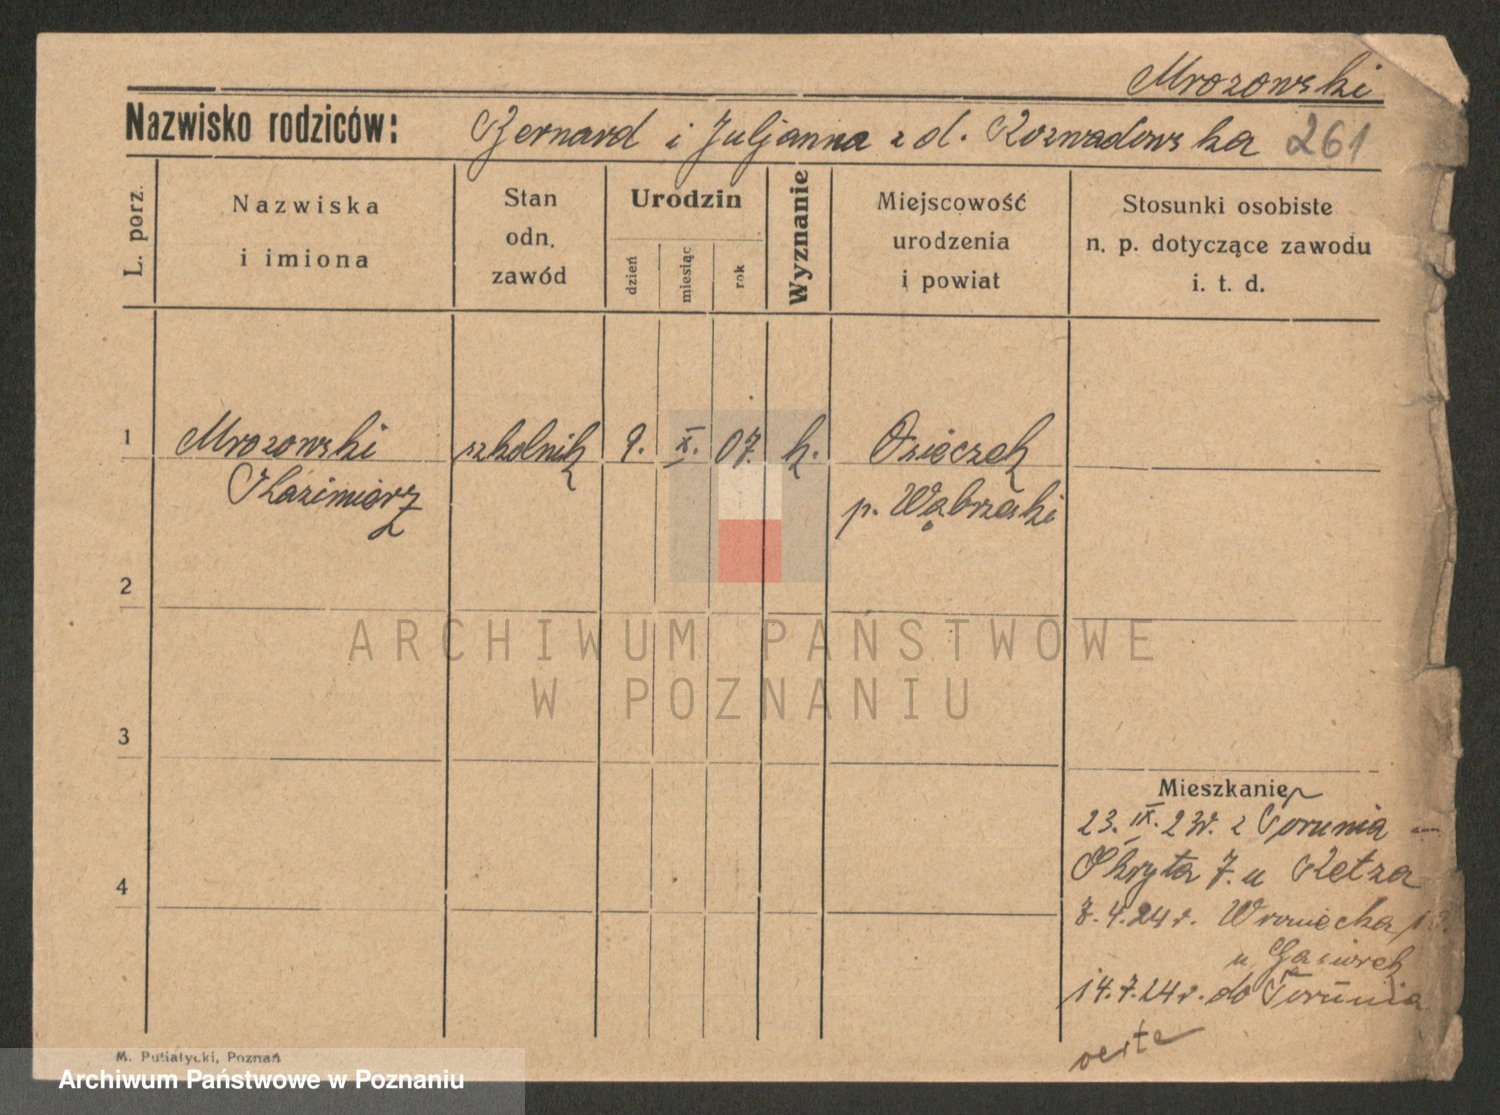 Mrozowski
Nazwisko rodziców: Bernard i Juljanna z d. Rozwadowska 261
L. porz.
Nazwiska
i imiona
Stan
odn.
zawód
Urodzin
dzień
miesiąc
rok
Wyznanie
Miejscowość
urodzenia
i powiat
Stosunki osobiste
n. p. dotyczące zawodu
i. t. d.
1 Mrozowski szkolnik 9. X. 07. k. Osieczek
Kazimierz p. Wąbrzeski
2
ARCHIWUM PAŃSTWOWE
W POZNANIU
3
Mieszkanie
23. IX. 23r. z Torunia
Skryta 7. u Retza
4
8.4.24 r. Wroniecka
u Gąsiorek
14.7.24 r. do Torunia
verte
M. Putiatycki, Poznań
Archiwum Państwowe w Poznaniu